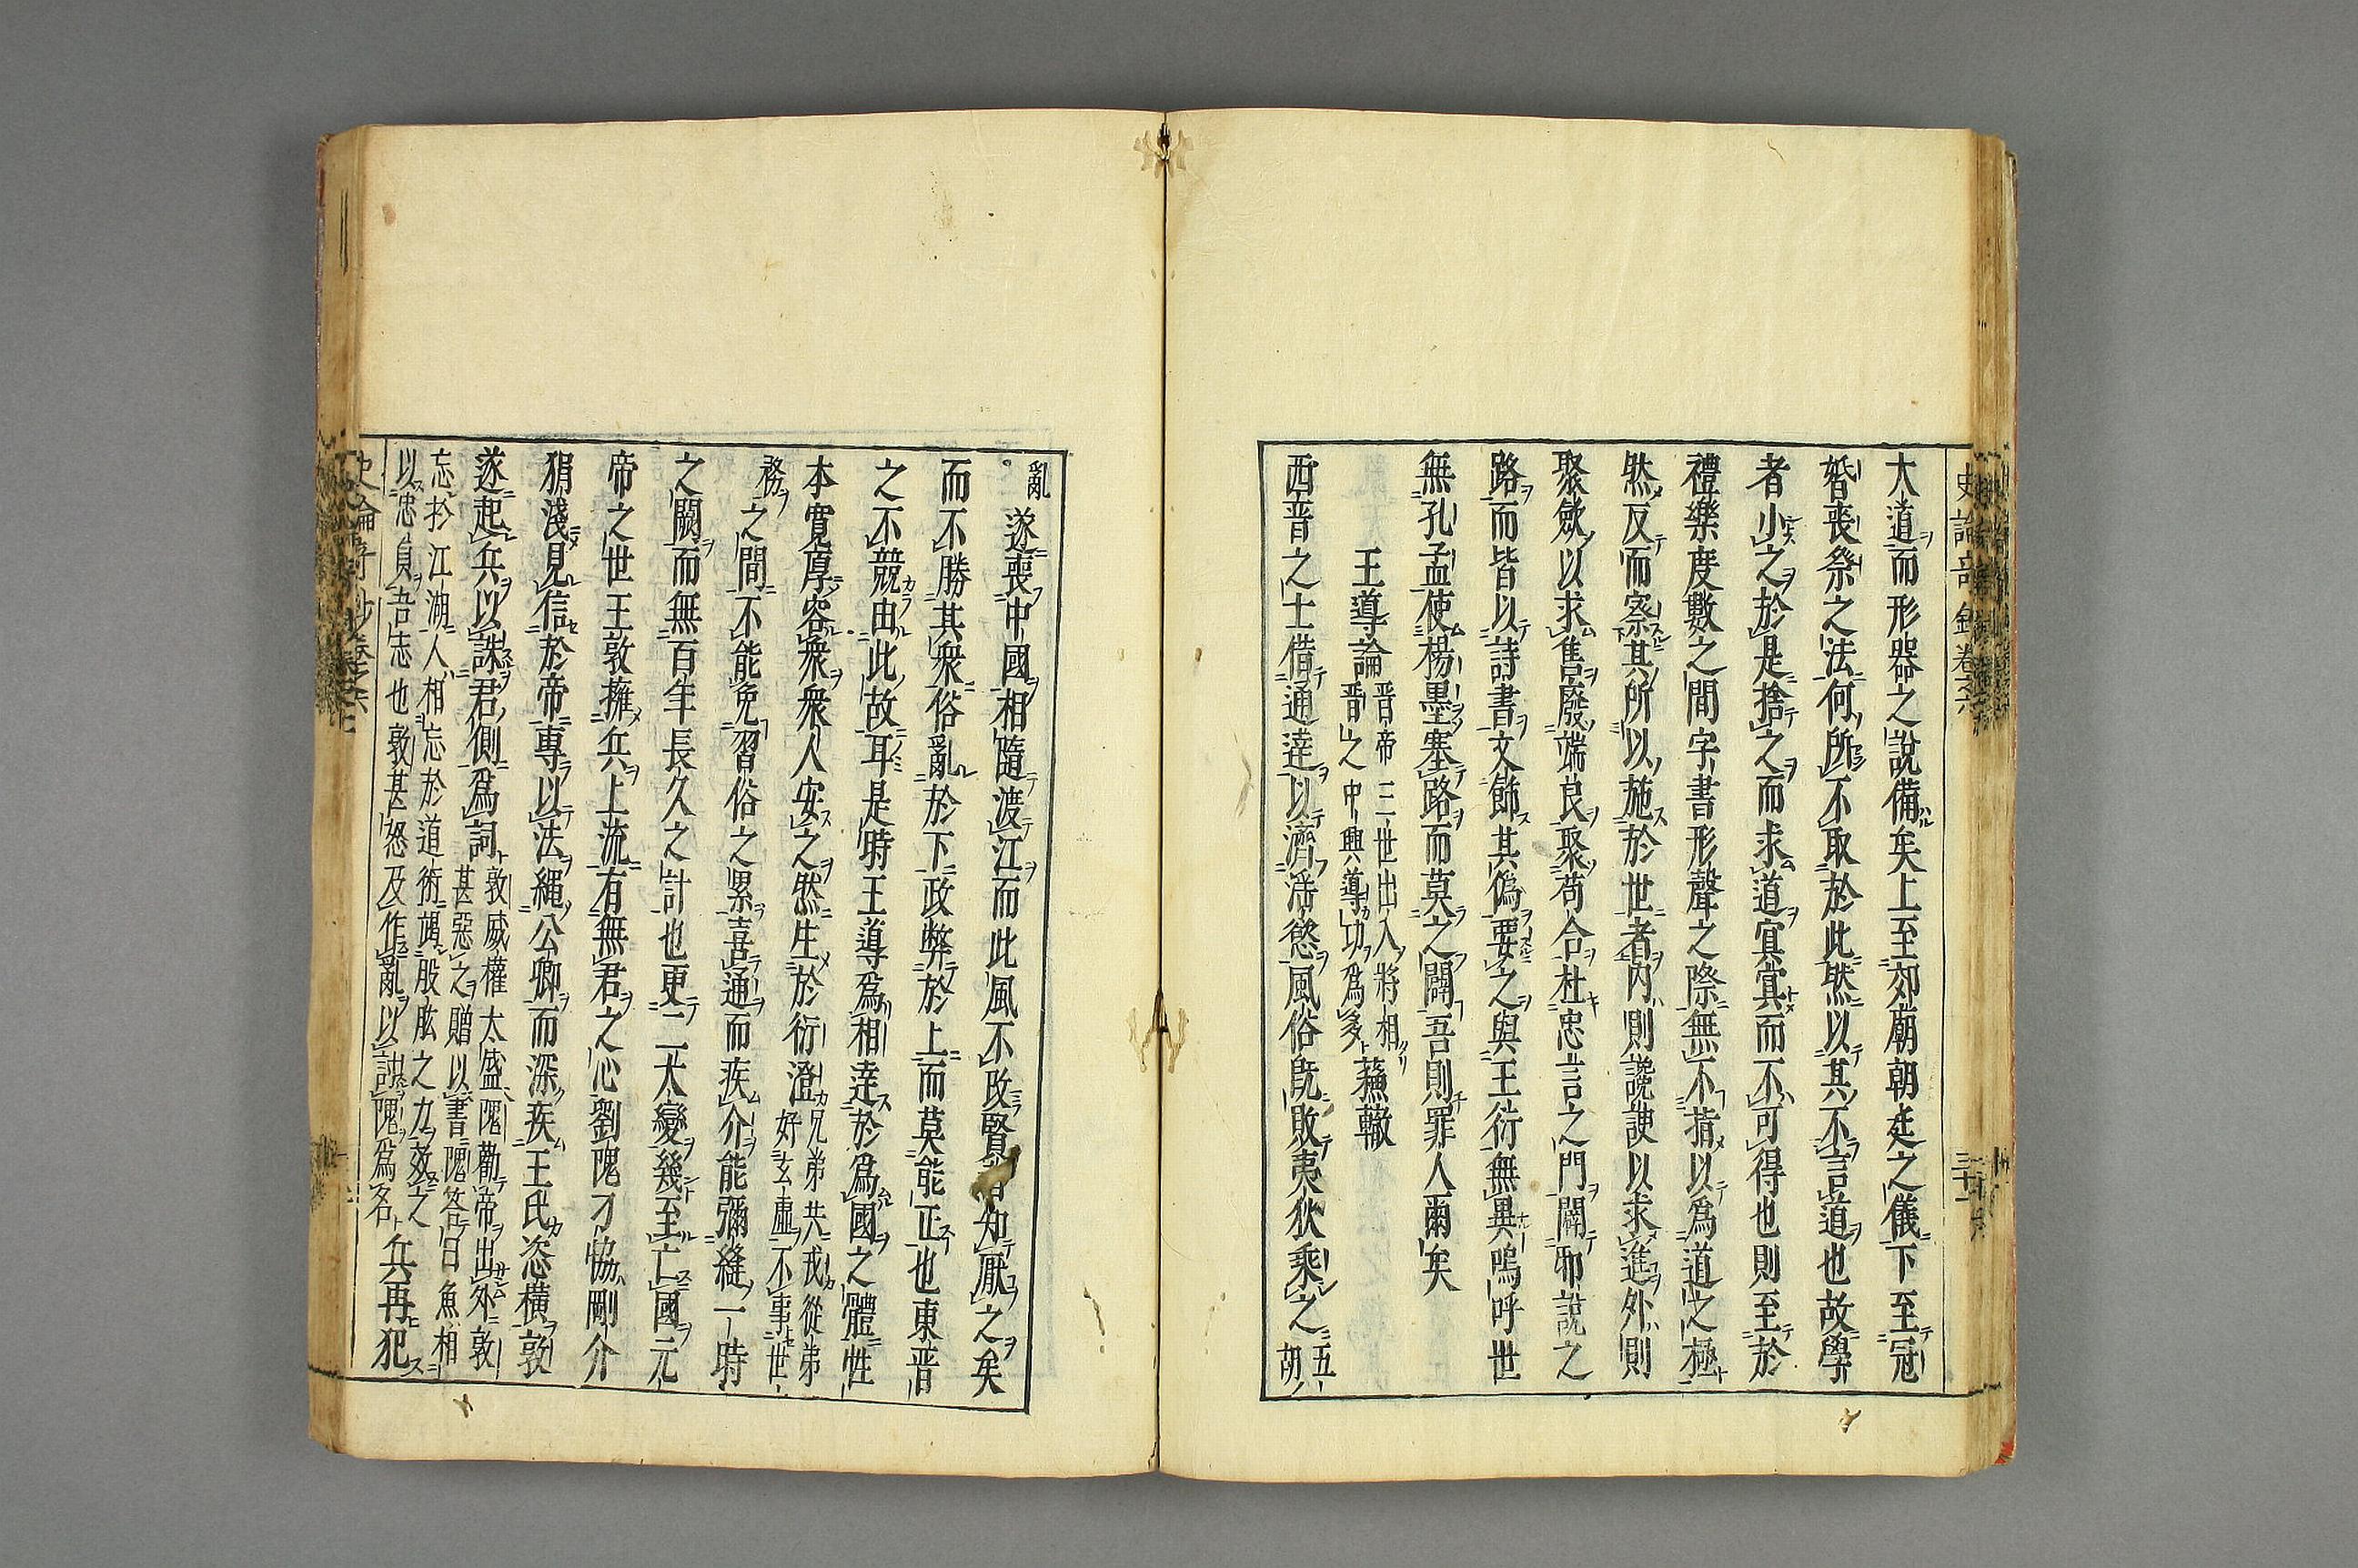 大道而形器之說備矣上至郊廟朝廷之儀下至冠
婚喪祭之法何所不取於此然以其不言道也故學
者小之於是捨之而求道寘寘而不可得也則至於
禮樂度數之間字書形聲之際無不指以爲道之極
然反而察其所以施於世者內則讒諛以求進外則
聚斂以求售廢端良聚苟合杜忠言之門闢邪說之
路而皆以詩書文飾其僞要之與王衍無異嗚呼世
無孔孟使楊墨塞路而莫之闢吾則罪人爾矣
王導論 晉帝三世出入將相
晉之中興導功爲多 蘓轍
西晉之士借通達以濟淫慾風俗既敗夷狄乘之 五
胡
亂 遂喪中國相隨渡江而此風不改賢者知厭之矣
而不勝其衆俗亂於下政弊於上而莫能正也東晉
之不競由此故耳是時王導爲相達於爲國之體性
本寬厚容衆衆人安之然生於衍澄 兄弟共戎從弟
好玄虛不事世
務 之間不能免習俗之累喜通而疾介能彌縫一時
之闕而無百年長久之計也更二大變幾至亡國元
帝之世王敦擁兵上流有無君之心劉隗刁恊剛介
狷淺見信於帝專以法繩公卿而深疾王氏恣橫敦
遂起兵以誅君側爲詞 敦威權太盛隗勸帝出外敦
甚惡之贈以書隗答曰魚相
忘於江湖人相忘於道術竭股肱之力效之
以忠貞吾志也敦甚怒及作亂以討隗爲名 兵再犯